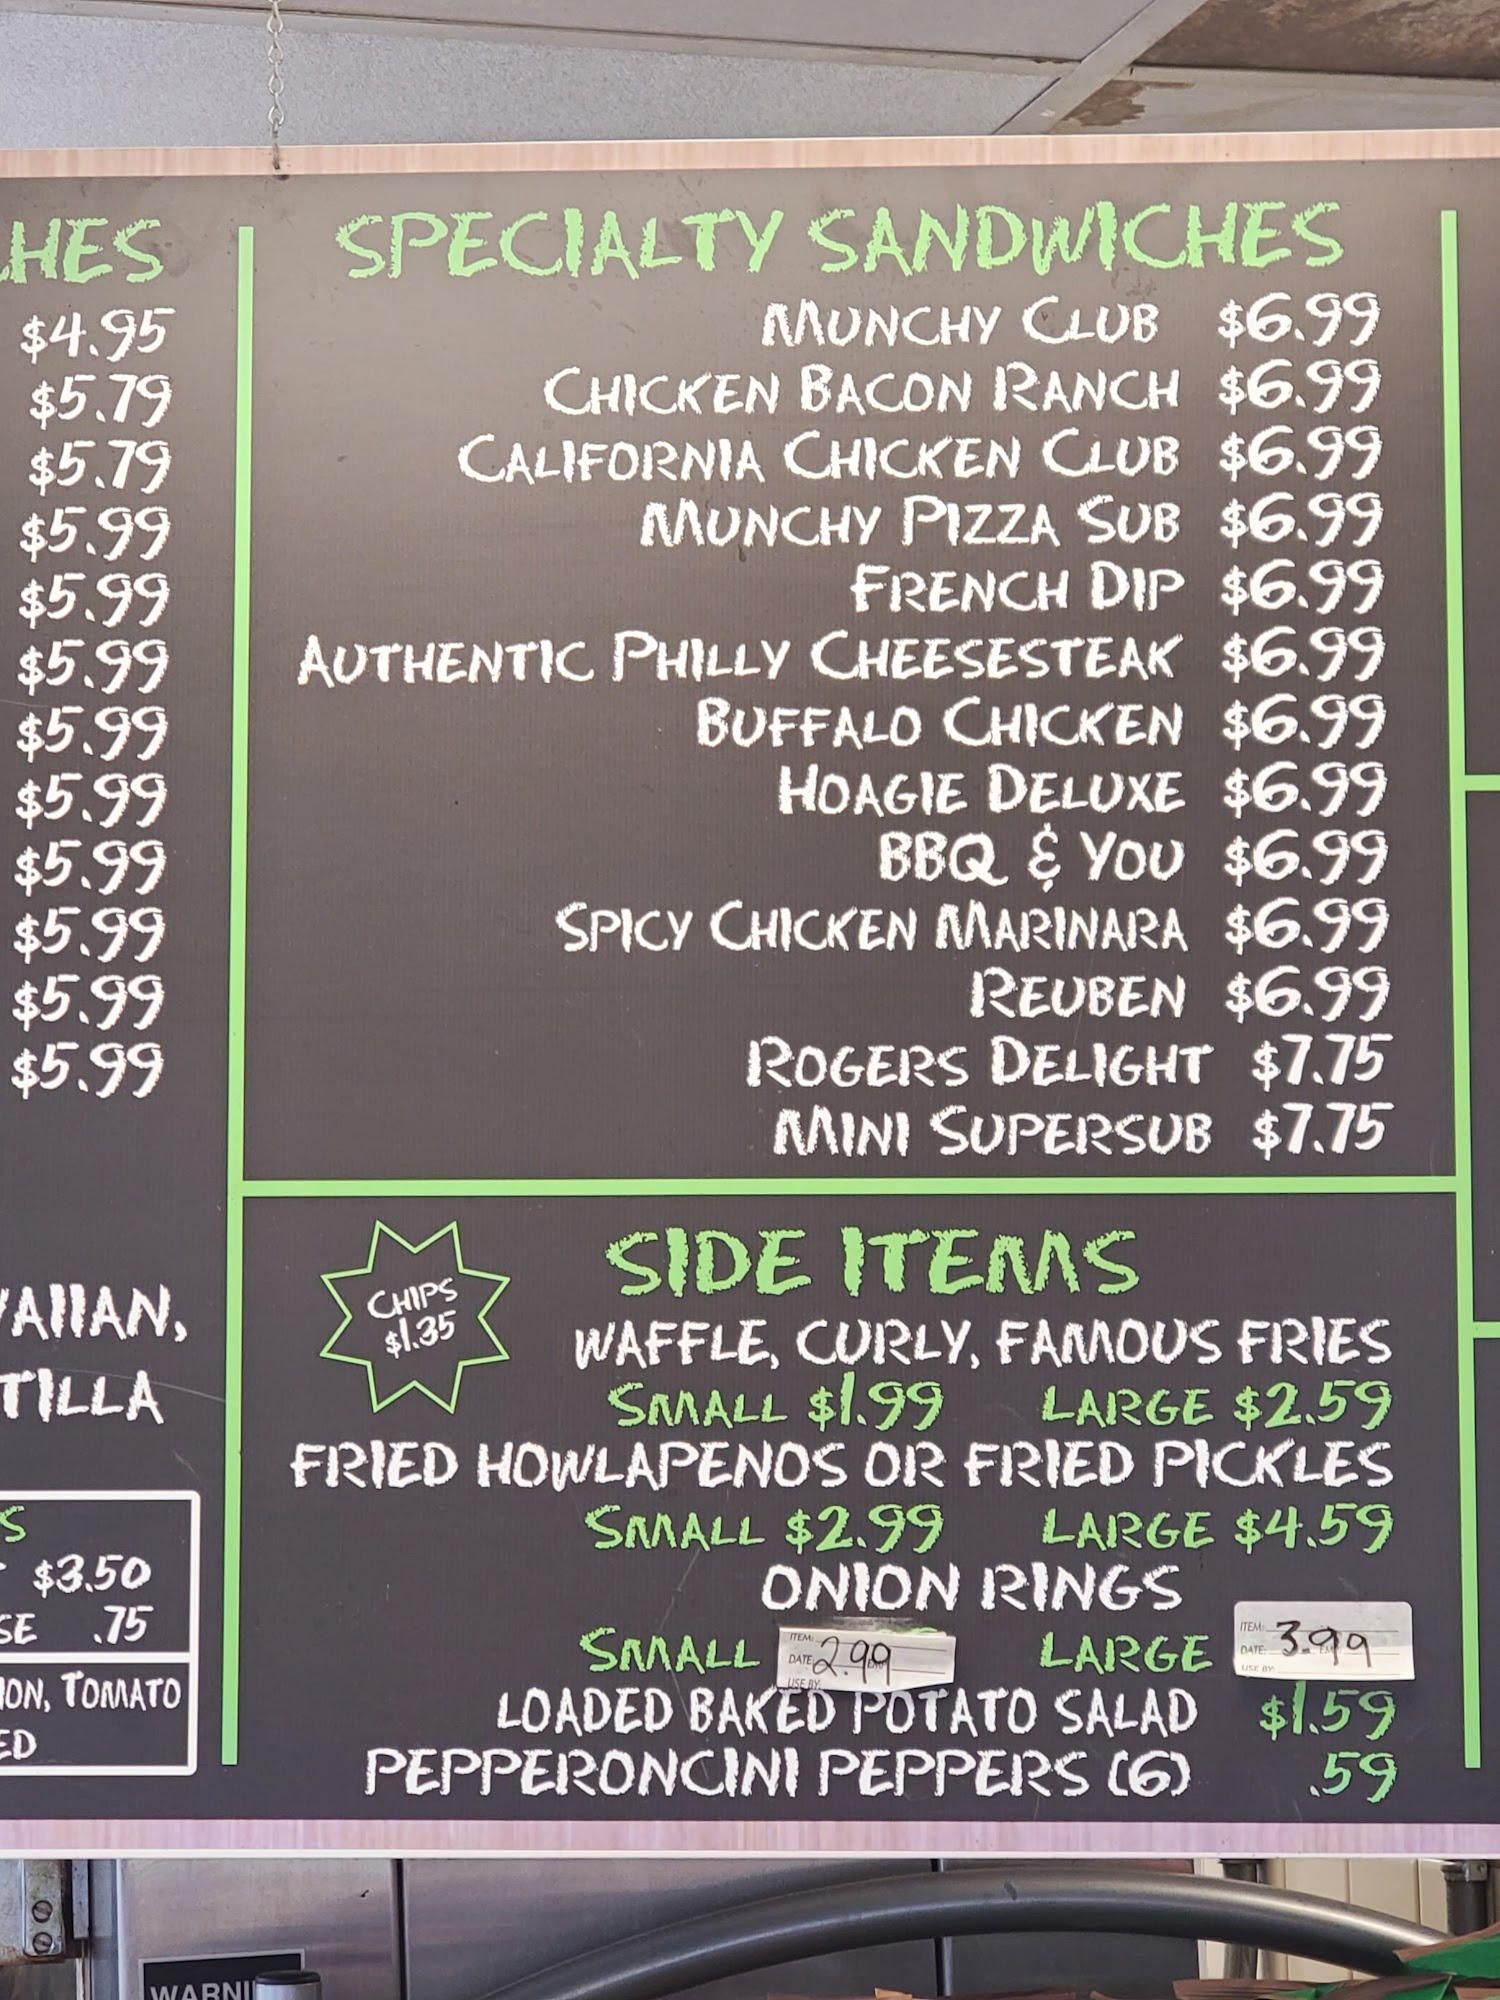 HES
$4.95
$5.79
$5.79
$5.99
$5.99
$5.99
$5.99
$5.99
$5.99
$5.99
$5.99
$5.99
TILLA
$3.50
.75
TOMATO
SPECIALTY SANDWICHES
MUNCHY CLUB $6.99
CHICKEN BACON RANCH $6.99
CALIFORNIA CHICKEN CLUB $6.99
MUNCHY PIZZA SUB $6.99
FRENCH DIP $6.99
AUTHENTIC PHILLY CHEESESTEAK $6.99
BUFFALO CHICKEN $6.99
HOAGIE DELUXE $6.99
BBQ & YOU $6.99
SPICY CHICKEN MARINARA $6.99
REUBEN $6.99
ROGERS DELIGHT $7.75
MINI SUPERSUB $7.75
CHIPS
$1.35
SIDE ITEMS
WAFFLE, CURLY, FAMOUS FRIES
SMALL $1.99 LARGE $2.59
FRIED HOWLAPENOS OR FRIED PICKLES
SMALL $2.99 LARGE $4.59
ONION RINGS
SMALL 2.99 LARGE 3.99
ITEM:
DATE:
USE BY:
ITEM:
DATE:
USE BY:
LOADED BAKED POTATO SALAD $1.59
PEPPERONCINI PEPPERS (6) .59
WARNI